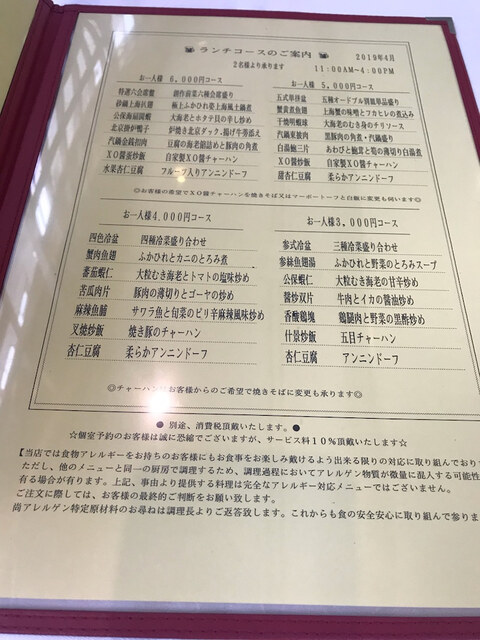 ランチコースのご案内
2019年4月
2名様より承ります
11:00AM~4:00PM
お一人様 6,000円コース
特選六合席盤 創作前菜六種会席盛り
砂鍋上海扒翅 極上ふかひれ姿上海風土鍋煮
大海老とホタテ貝の辛し炒め
北京掛炉鴨子 炉焼き北京ダック、揚げ牛蒡添え
豆腐の海老餡詰めと豚肉の角煮
XO醤炒飯 自家製XO醤チャーハン
水果杏仁豆腐 フルーツ入りアンニンドーフ
お一人様 5,000円コース
五式単拼盆 五種オードブル別皿単品盛り
蟹黄煮魚翅 上海蟹の味噌とフカヒレの煮込み
干焼明蝦球 大海老のむき身のチリソース
黒豚肉の角煮・汽鍋蒸し
白湯鮑三片 あわびと鮑茸と筍の薄切り白湯煮
XO醤炒飯 自家製XO醤チャーハン
甜杏仁豆腐 柔らかアンニンドーフ
◎お客様の希望でXO醤チャーハンを焼きそば又はマーボートーフと白飯に変更も伺います◎
お一人様4,000円コース
四色冷盆 四種冷菜盛り合わせ
蟹肉魚翅 ふかひれとカニのとろみ煮
蕃茄蝦仁 大粒むき海老とトマトの塩味炒め
苦瓜肉片 豚肉の薄切りとゴーヤの炒め
麻辣魚脯 サワラ魚と旬菜のピリ辛麻辣風味炒め
叉焼炒飯 焼き豚のチャーハン
杏仁豆腐 柔らかアンニンドーフ
お一人様3,000円コース
参式冷盆 三種冷菜盛り合わせ
参絲魚翅湯 ふかひれと野菜のとろみスープ
公保蝦仁 大粒むき海老の甘辛炒め
醤炒双片 牛肉とイカの醤油炒め
香酸鶏塊 鶏腿肉と野菜の黒酢炒め
什景炒飯 五目チャーハン
杏仁豆腐 アンニンドーフ
◎チャーハンはお客様からのご希望で焼きそばに変更も承ります◎
● 別途、消費税頂戴いたします。●
☆個室予約のお客様は誠に恐縮でございますが、サービス料10%頂戴いたします☆
【当店では食物アレルギーをお持ちのお客様にもお食事をお楽しみ戴けるよう出来る限りの対応に取り組んでおりま
ただし、他のメニューと同一の厨房で調理するため、調理過程においてアレルゲン物質が微量に混入する可能性
有る場合が有ります。上記、事由より提供する料理は完全なアレルギー対応メニューではございません。
ご注文に際しては、お客様の最終的ご判断をお願い致します。
尚アレルゲン特定原材料のお尋ねは調理長よりご返答致します。これからも食の安全安心に取り組んで参りま